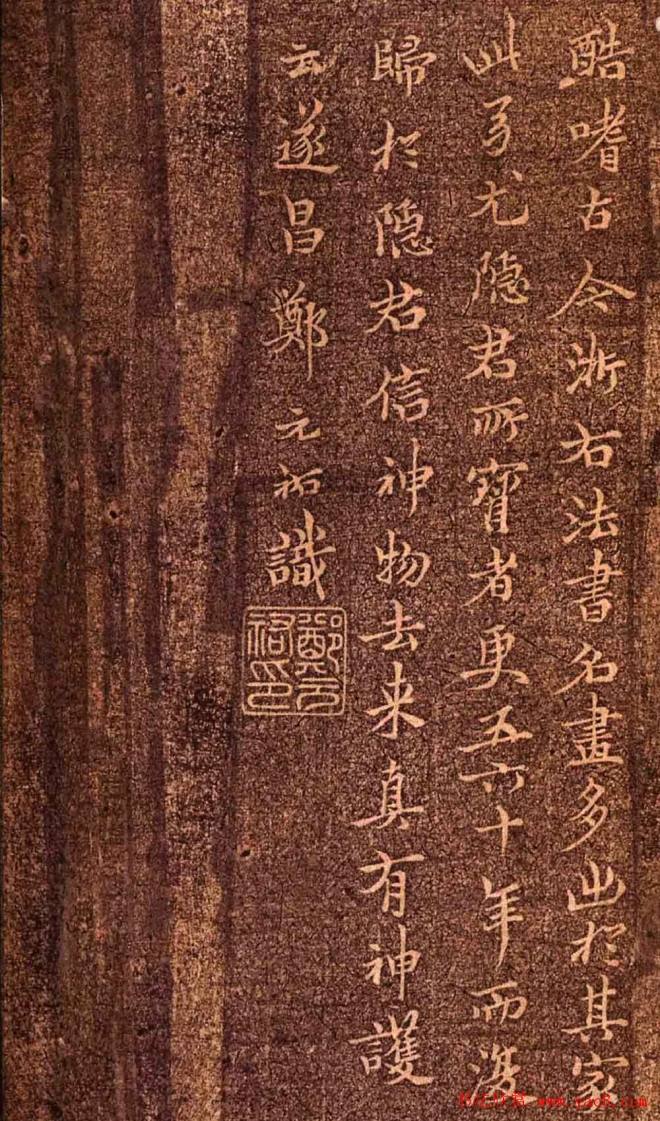 酷嗜古今浙右法書名畫多出於其家
此弓尤隱君所寶者更五六十年而復
歸於隱君信神物去来真有神護
云遂昌鄭元祐識
鄭元祐印